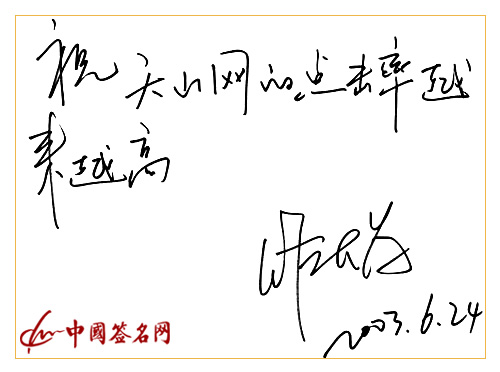 祝天山网的点击率越
来越高
2003.6.24
中國签名网